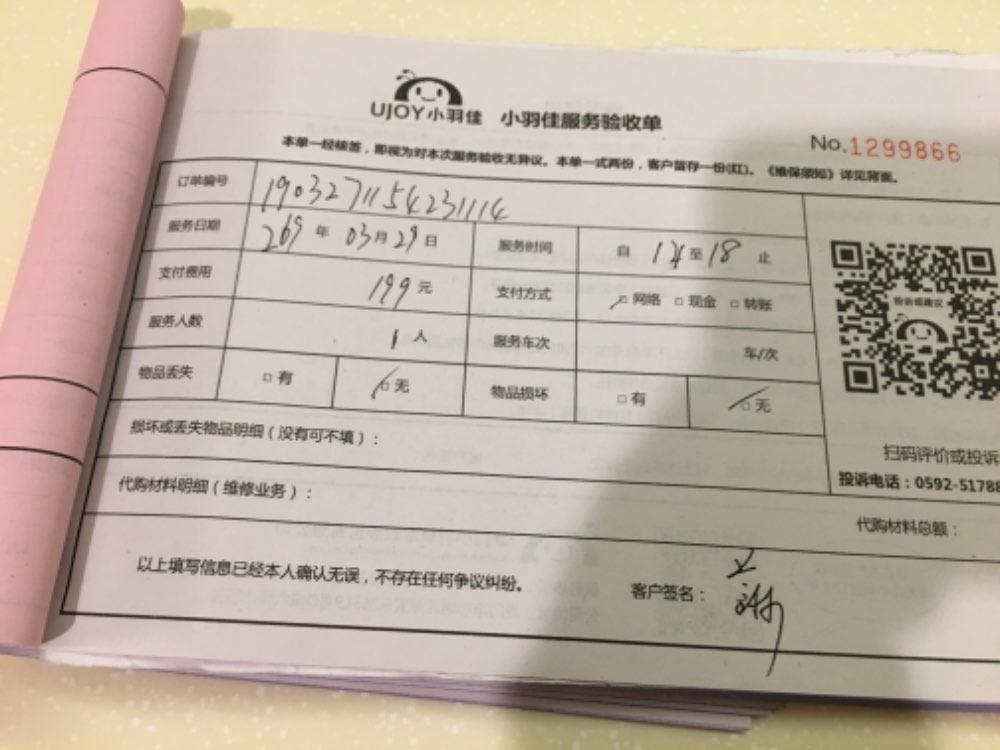 UJOY小羽佳 小羽佳服务验收单
No.1299866
本单一经核签，即视为对本次服务验收无异议。本单一式两份，客户留存一份(红)。《维保须知》详见背面。
订单编号 1903271154231114
服务日期 2019年 03月29日 服务时间 自 14至18 止
支付费用 199元 支付方式 □网络 □现金 □转账
服务人数 1人 服务车次 车/次
物品丢失 □有 □无 物品损坏 □有 □无
投诉或建议
损坏或丢失物品明细（没有可不填）：
扫码评价或投诉
投诉电话：0592-51788
代购材料明细（维修业务）：
代购材料总额：
以上填写信息已经本人确认无误，不存在任何争议纠纷。 客户签名：